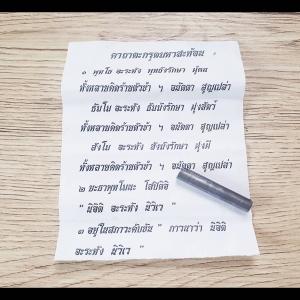 คาถาตะกรุดมหาสะท้อน
๑ พุทโธ อะระหัง พุทธังรักษา
ทั้งหลายคิดร้ายตัวข้า ฯ อนัตตา สูญเปล่า
ธัมโม อะระหัง ธัมมังรักษา ฝูงสัตว์
ทั้งหลายคิดร้ายตัวข้า ฯ อนัตตา สูญเปล่า
สังโฆ อะระหัง สังฆังรักษา ฝูงผี
ทั้งหลายคิดร้ายตัวข้า ฯ อนัตตา สูญเปล่า
๒ ยะธาพุทโมนะ
" นิอิติ อะระหัง นิวิเว "
๓ อยู่ในสภาวะคับขัน " ภาวนาว่า นิอิติ
อะระหัง นิวิเว "